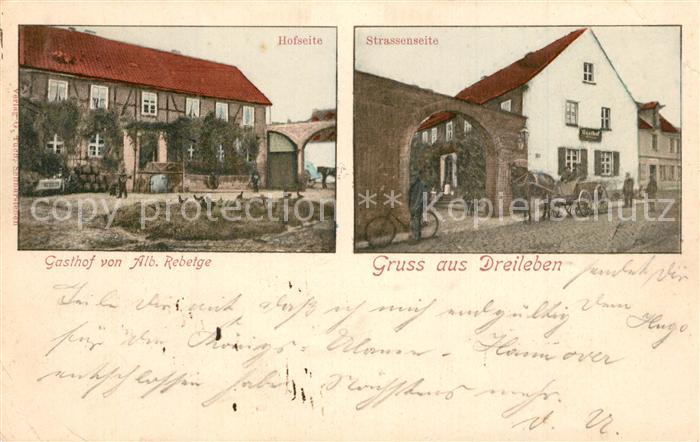 Hofseite
Strassenseite
Gasthof
Gasthof von Alb. Rebetge
Gruss aus Dreileben
sendet Dir
Teile Dir mit daß ich mich endgültig Dein Hugo
für den Königs-Ulanen-Hannover
entschlossen habe. Nächstens mehr.
D. U.
copyright-ansichtskarten-kiel-philatelie-schutz